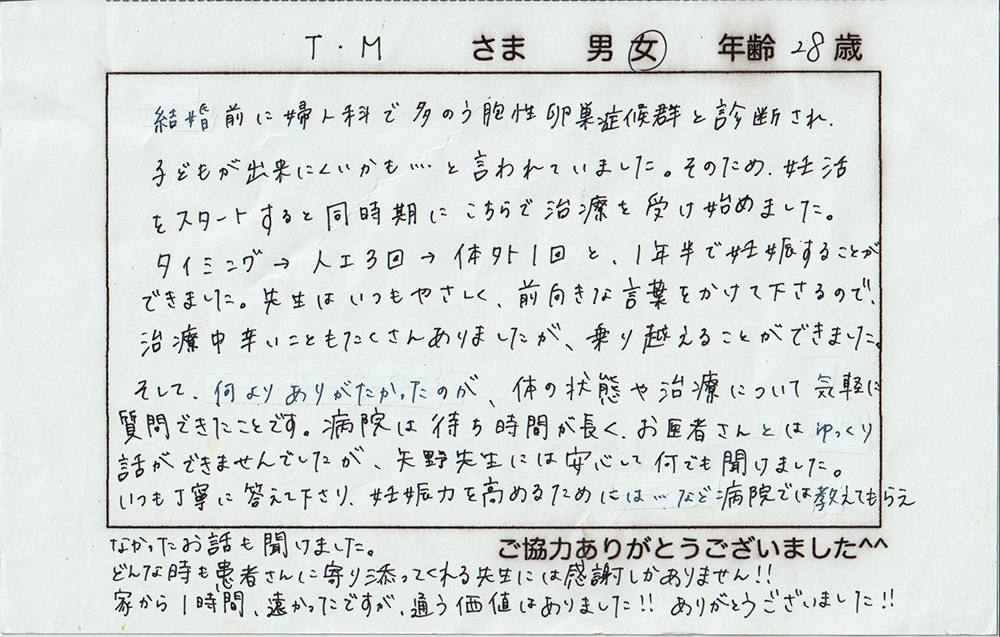 T・M さま 男 女 年齢 28 歳
結婚前に婦人科で多のう胞性卵巣症候群と診断され、
子どもが出来にくいかも…と言われていました。そのため、妊活
をスタートすると同時期にこちらで治療を受け始めました。
タイミング→人工3回→体外1回と、1年半で妊娠することが
できました。先生はいつもやさしく、前向きな言葉をかけて下さるので、
治療中辛いこともたくさんありましたが、乗り越えることができました。
そして、何よりありがたかったのが、体の状態や治療について気軽に
質問できたことです。病院は待ち時間が長く、お医者さんとはゆっくり
話ができませんでしたが、矢野先生には安心して何でも聞けました。
いつも丁寧に答えて下さり、妊娠力を高めるためには…など病院では教えてもらえ
なかったお話も聞けました。
ご協力ありがとうございました^^
どんな時も患者さんに寄り添ってくれる先生には感謝しかありません!!
家から1時間、遠かったですが、通う価値はありました!! ありがとうございました!!